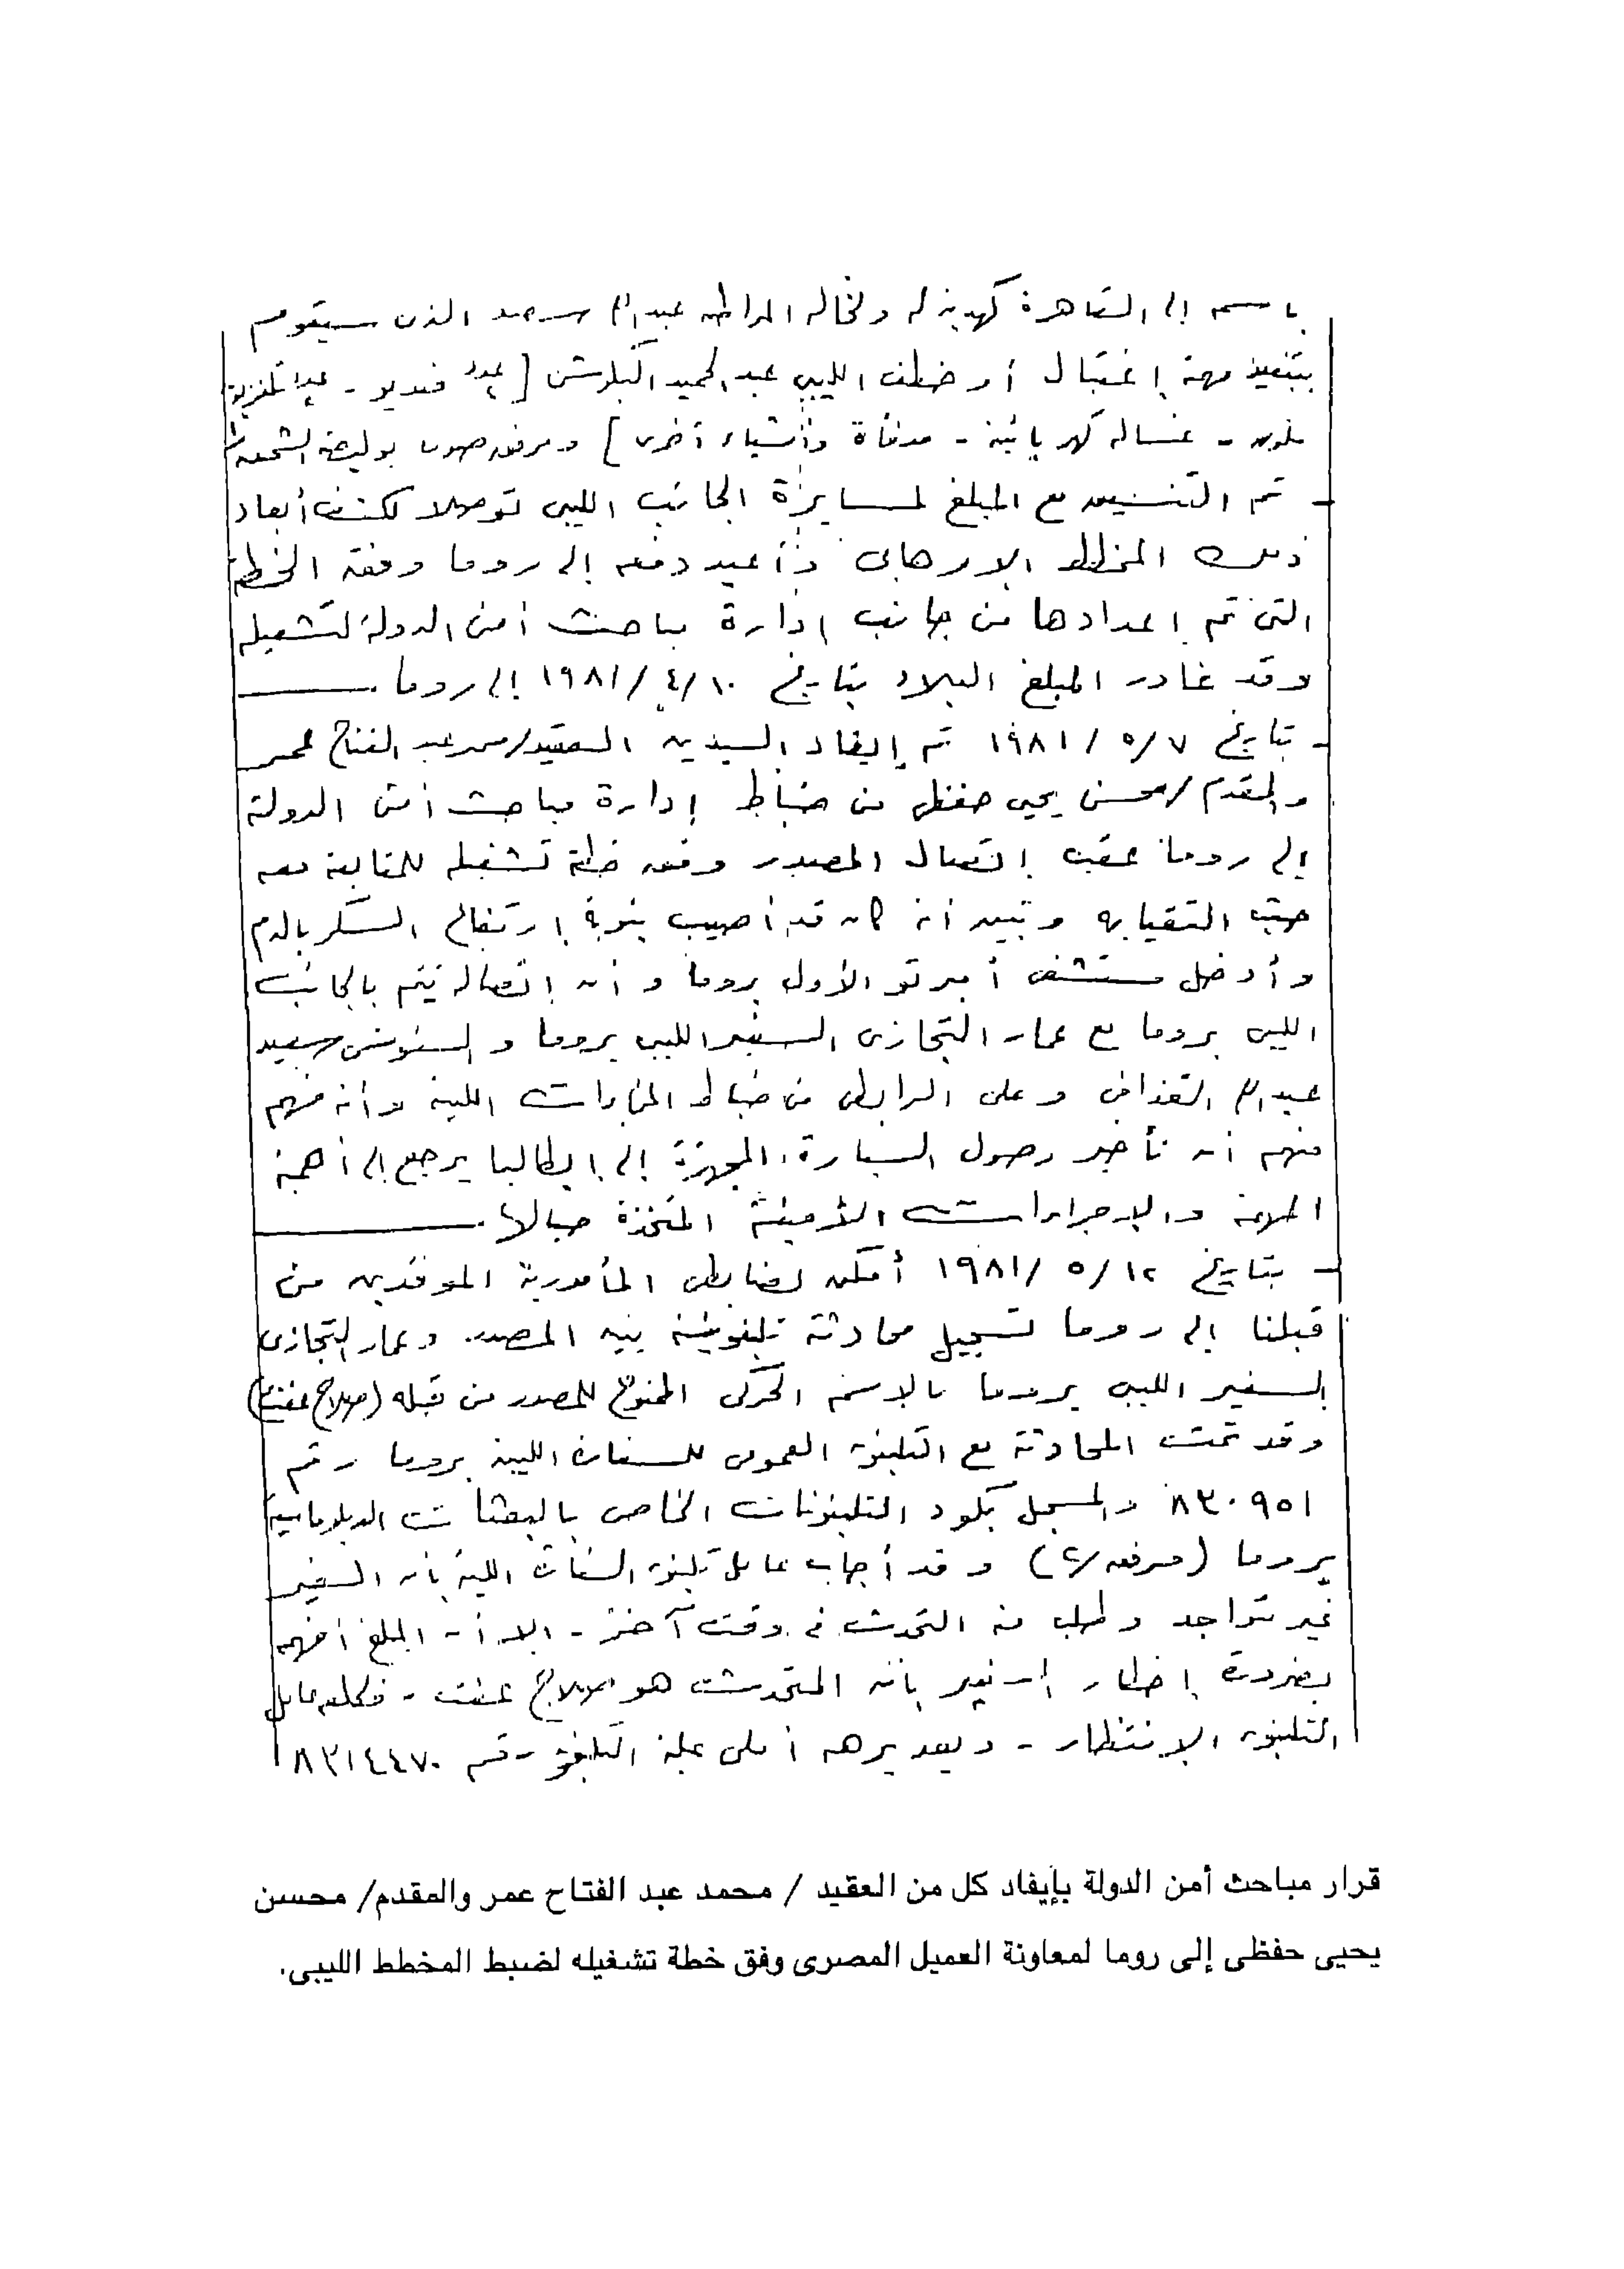 باسمه إلى القاهرة كهدية له ولخاله المواطن عبد الله سعيد الذى سيقوم
بتنفيذ مهمة إغتيال أو خطف الليبى عبد الحميد البكوش [ عدد فيديو - عدد تلفزيون
ملون - غسالة كهربائية - مدفأة وأشياء أخرى ] ومرفق صورة بوليصة الشحن
- تم التنسيق مع المبلغ لمسايرة الجانب الليبى توصلا لكشف أبعاد
ذلك المخطط الإرهابى وأعيد دفعه إلى روما وفقه الخطة
التى تم إعدادها من جانب إدارة مباحث أمن الدولة لتشغيله
وقد غادر المبلغ البلاد بتاريخ ١٠/٤/١٩٨١ إلى روما
- بتاريخ ٧/٥/١٩٨١ تم إيفاد السيدين العقيد/محمد عبد الفتاح عمر
والمقدم/محسن يحيى حفظى من ضباط إدارة مباحث أمن الدولة
إلى روما عقب إتصال المصدر وفق خطة تشغيله للمقابلة معه
حيث التقيا به وتبين أنه كان قد أصيب بنوبة إرتفاع السكر بالدم
وأدخل مستشفى أمبرتو الأول بروما وأن إتصاله يتم بالجانب
الليبى بروما مع عمار التجازى السفير الليبى بروما والسنوسى سعيد
عبد الله القذافى وعلى الرابطى من ضباط المخابرات الليبية وأنه فهم
منهم أن تأخير وصول السيارة المجهزة إلى إيطاليا يرجع إلى أهمية
المهمة والإجراءات التأمينية المتخذة حيالها
- بتاريخ ١٢/٥/١٩٨١ أمكن لضابطى المأمورية الموفدين من
قبلنا إلى روما تسجيل محادثة تليفونية بين المصدر وعمار التجازى
السفير الليبى بروما بالاسم الحركى الممنوح للمصدر من قبله (صلاح عفت)
وقد تمت المحادثة مع التليفون العمومى للسفارة الليبية بروما رقم
٨٣٠٩٥١ والمسجل بكود التليفونات الخاص بالبعثات الدبلوماسية
بروما (مرفق/٤) وقد أجاب عامل تليفون السفارة الليبية بأن السفير
غير متواجد وطلب منه التحدث فى وقت آخر - إلا أن المبلغ أفهمه
بضرورة إخطار السفير بأن المتحدث هو صلاح عفت - فكلفه عامل
التليفون الإنتظار - وبعد برهة أملى عليه التليفون رقم ٨٣١٤٤٧٠
قرار مباحث أمن الدولة بإيفاد كل من العقيد / محمد عبد الفتاح عمر والمقدم/ محسن
يحيى حفظى إلى روما لمعاونة العميل المصرى وفق خطة تشغيله لضبط المخطط الليبى.